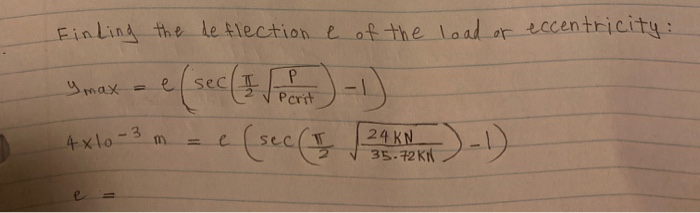 Finding the deflection e of the load or eccentricity:
ymax = e(sec(π/2 √(P/Pcrit)) -1)
4x10⁻³ m = e(sec(π/2 √(24KN/35.72KN)) -1)
e =